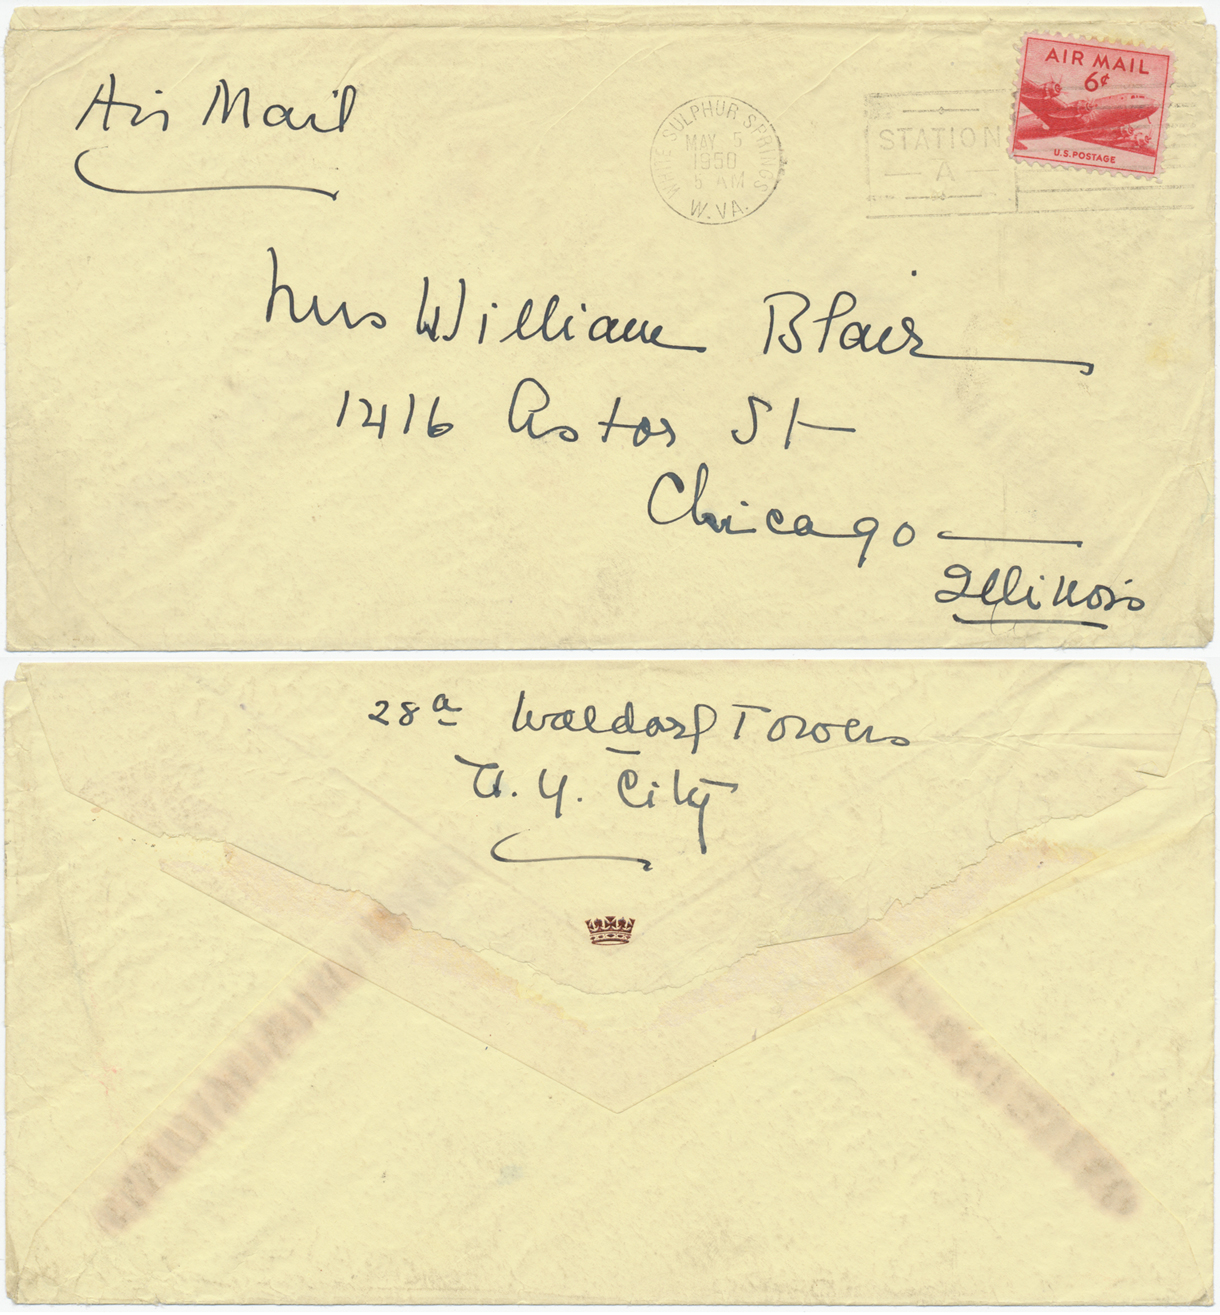 Air Mail
WHITE SULPHUR SPRINGS
MAY 5
1950
5 AM
W.VA.
STATION
A
AIR MAIL
6¢
U.S. POSTAGE
Mrs William Blair
1416 Astor St
Chicago
Illinois
28a Waldorf Towers
N. Y. City